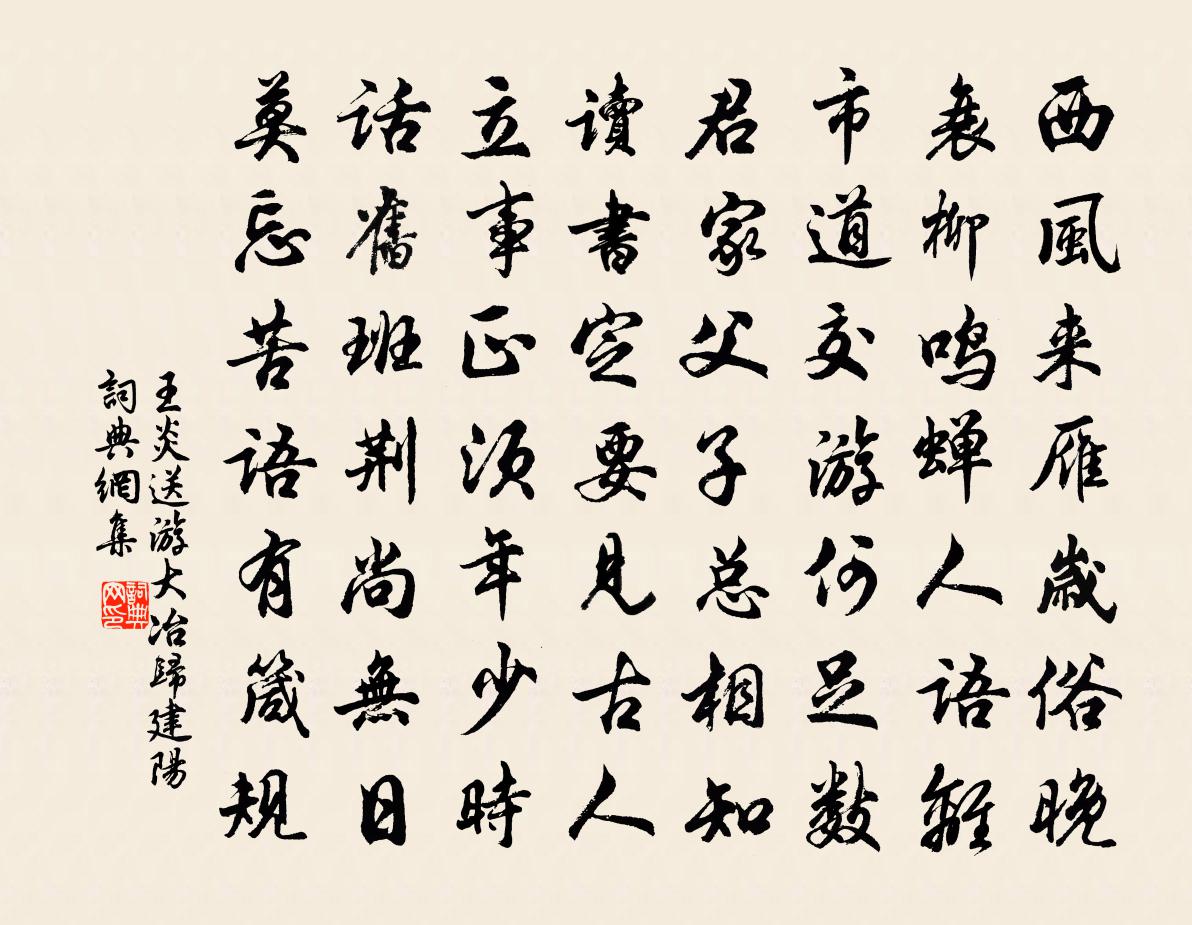 西風来雁歲俗晚
衰柳鳴蟬人語離
市道交游何足數
君家父子总相知
讀書定要見古人
立事正須年少時
話舊班荆尚無日
莫忘苦語有箴規
王炎送游大冶歸建陽
詞典網集
詞典网印